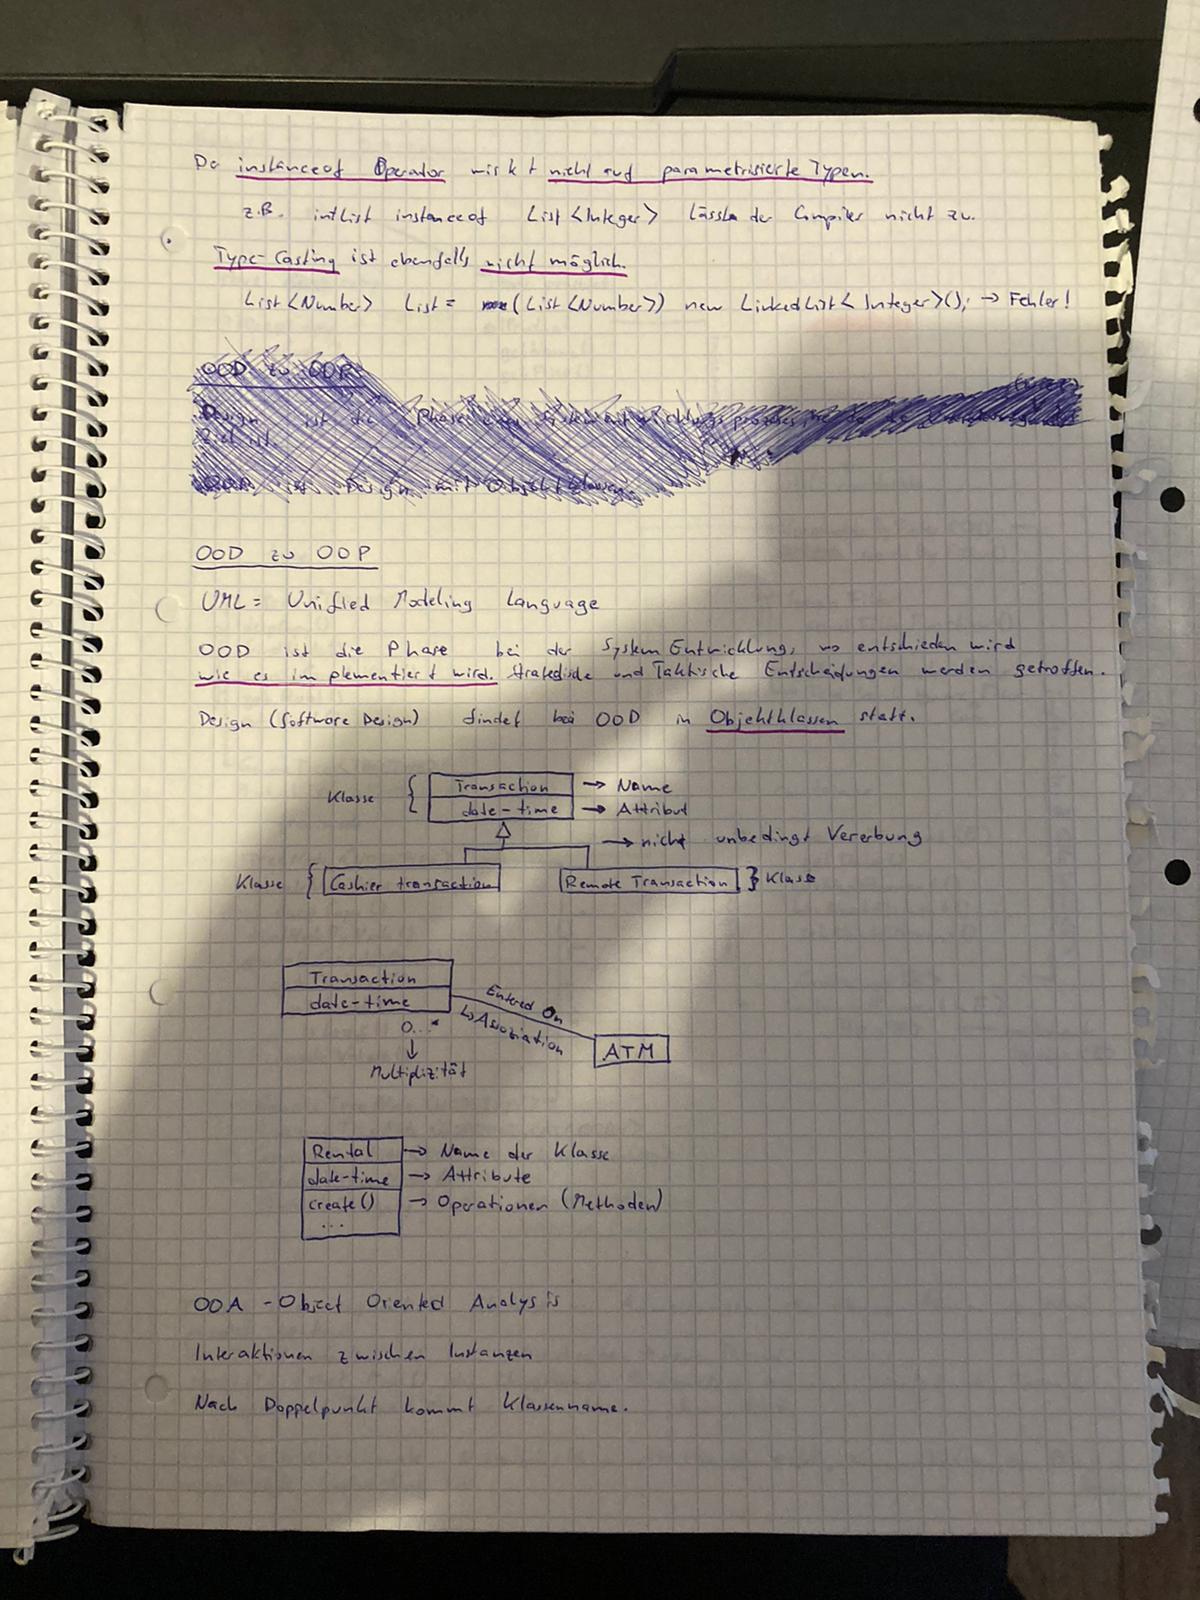 Da instanceof Operator wirkt nicht auf parametrisierte Typen.
z.B. intList instanceof List<Integer> lässt der Compiler nicht zu.
Type-Casting ist ebenfalls nicht möglich.
List<Number> List = (List<Number>) new LinkedList<Integer>(); → Fehler!
OOD zu OOP
Design ist die Phase
Ziel ist
ist Design mit Objektklassen.
OOD zu OOP
UML = Unified Modeling Language
OOD ist die Phase bei der System Entwicklung, wo entschieden wird
wie es implementiert wird. Stratedische und Taktische Entscheidungen werden getroffen.
Design (Software Design) findet bei OOD in Objekthlassen statt.
Klasse { Transaction → Name
date-time → Attribut
→ nicht unbedingt Vererbung
Klasse { Cashier transaction Remote Transaction } Klasse
Transaction
date-time
Entered On
↳ Assoziation
0...*
ATM
↓
Multiplizität
Rental → Name der Klasse
date-time → Attribute
create() → Operationen (Methoden)
...
OOA - Object Oriented Analysis
Interaktionen zwischen Instanzen
Nach Doppelpunkt kommt Klassenname.